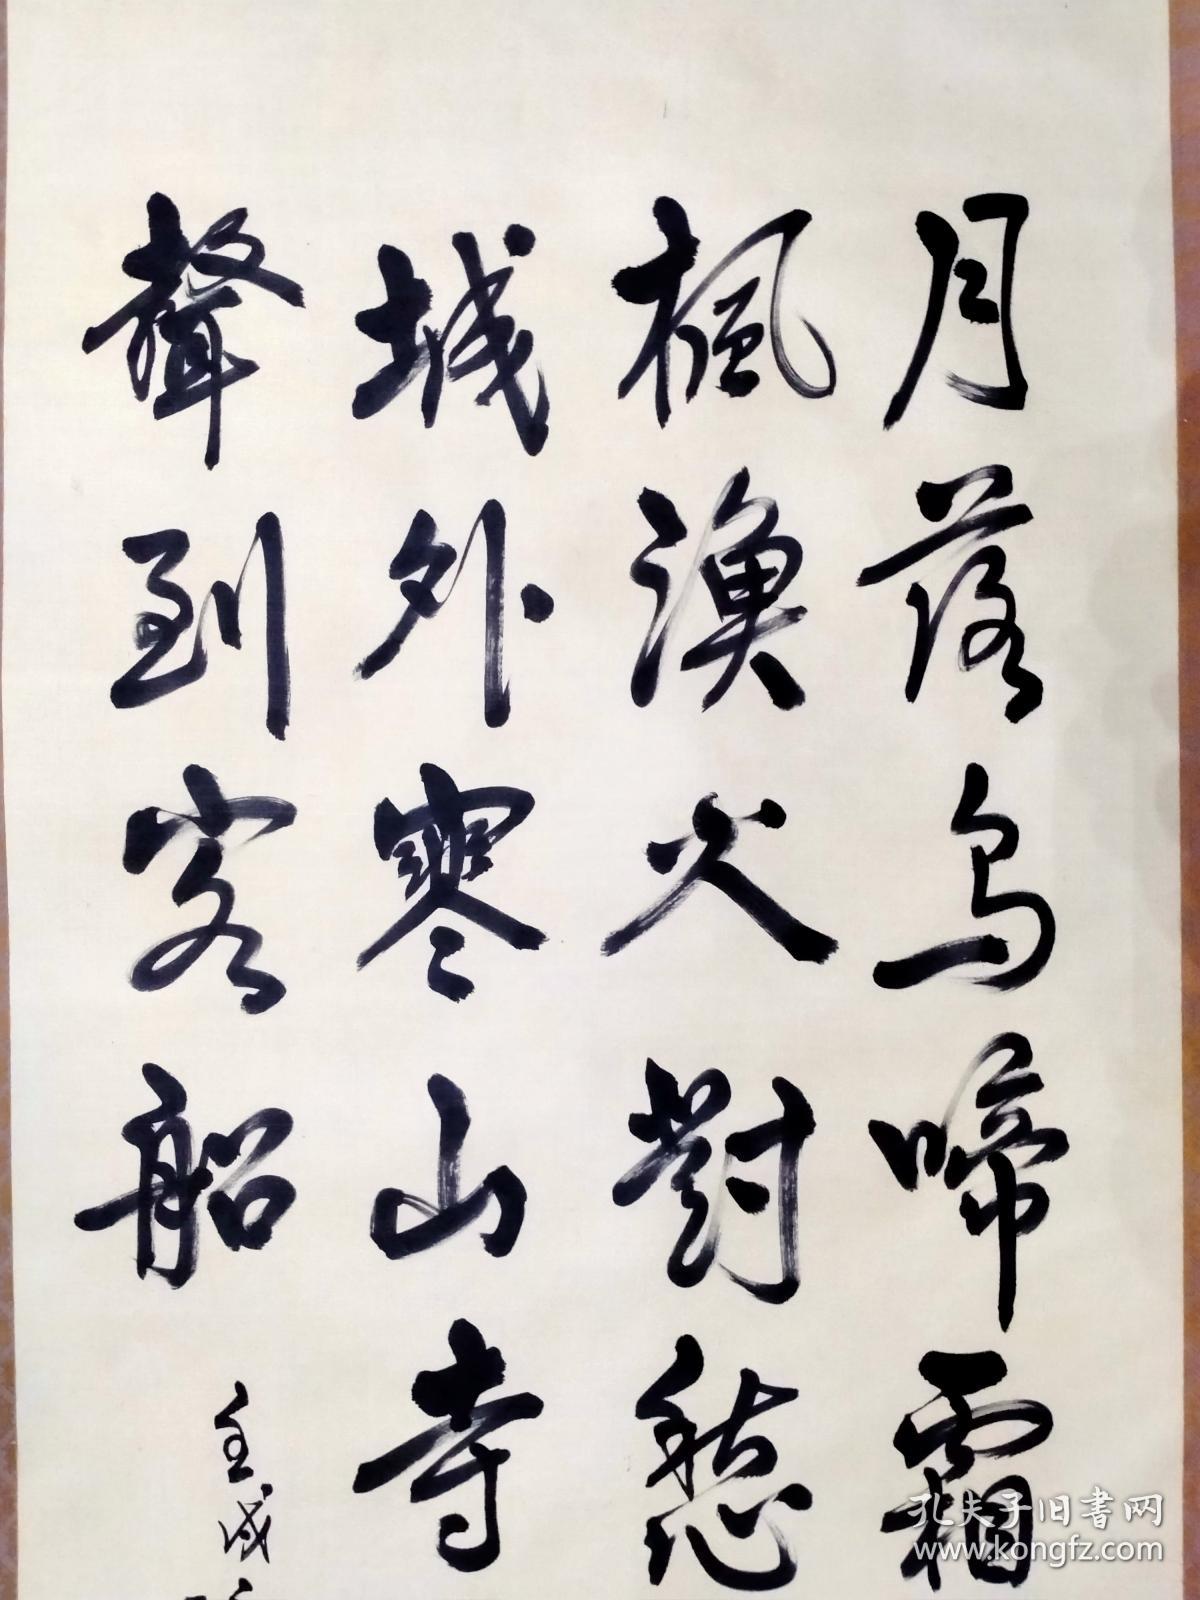 月落烏啼霜
楓漁火對愁
城外寒山寺
聲到客船
壬戌
孔夫子旧書网
www.kongfz.com